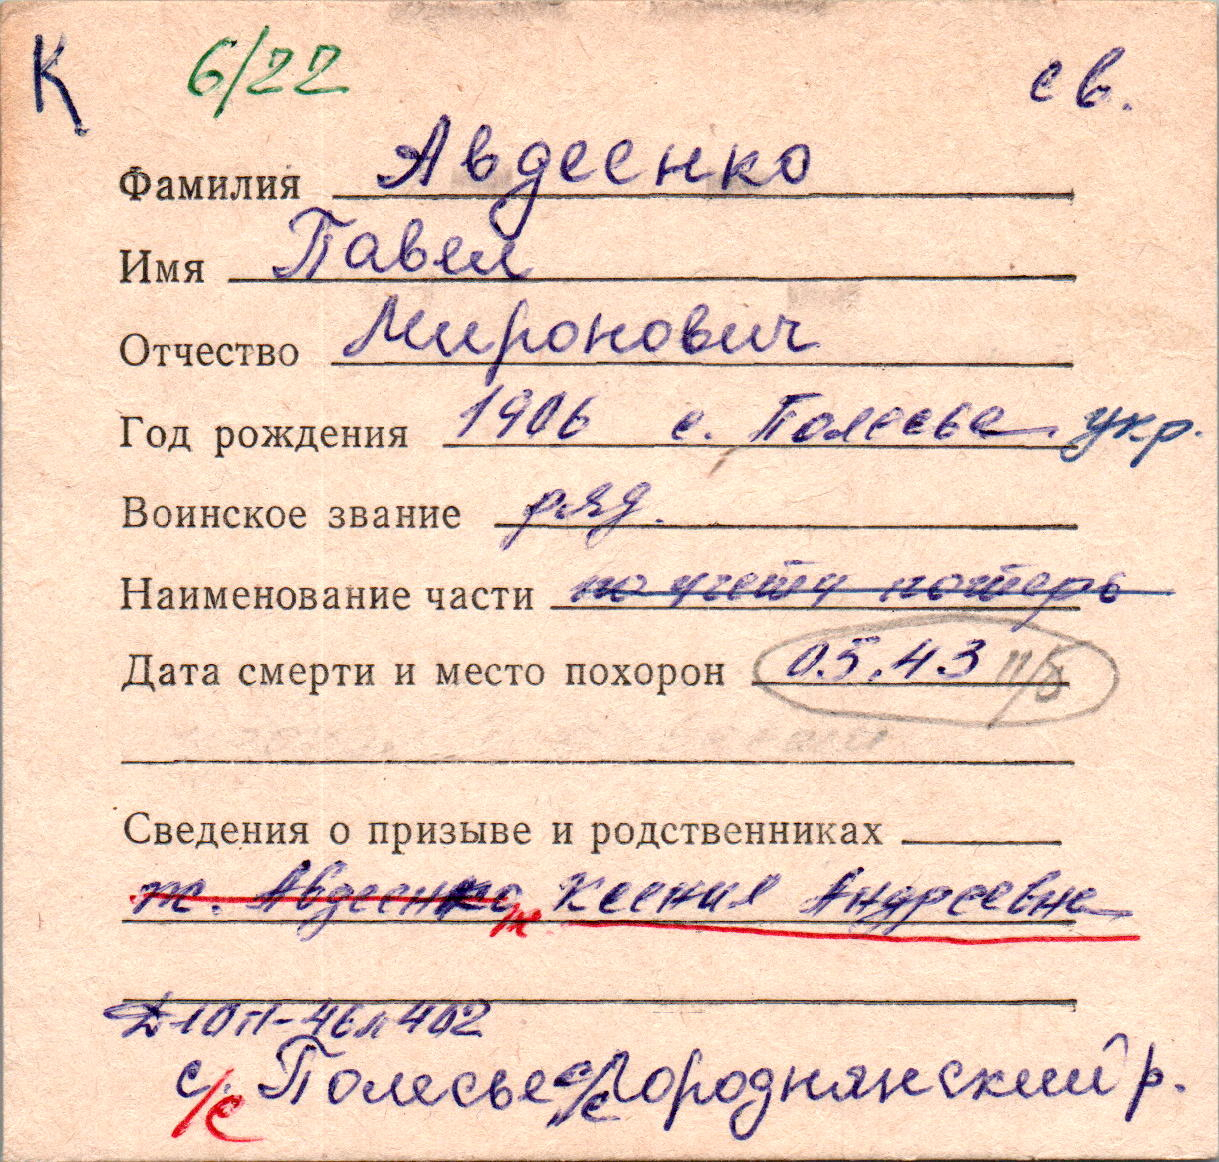 К 6/22 св.
Фамилия Авдеенко
Имя Павел
Отчество Миронович
Год рождения 1906 с. Полесье укр.
Воинское звание ряд.
Наименование части по учету потерь
Дата смерти и место похорон 05.43 п/б
Сведения о призыве и родственниках
ж. Авдеенко ж Ксения Андреевна
Д-10п-46л402
с/с Полесье с/с Городнянский р.